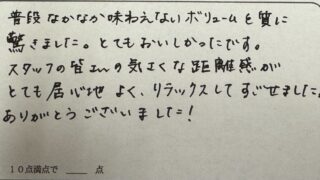 普段なかなか味わえないボリュームと質に
驚きました。とてもおいしかったです。
スタッフの皆さんの気さくな距離感が
とても居心地よく、リラックスしてすごせました。
ありがとうございました!
10点満点で ____ 点